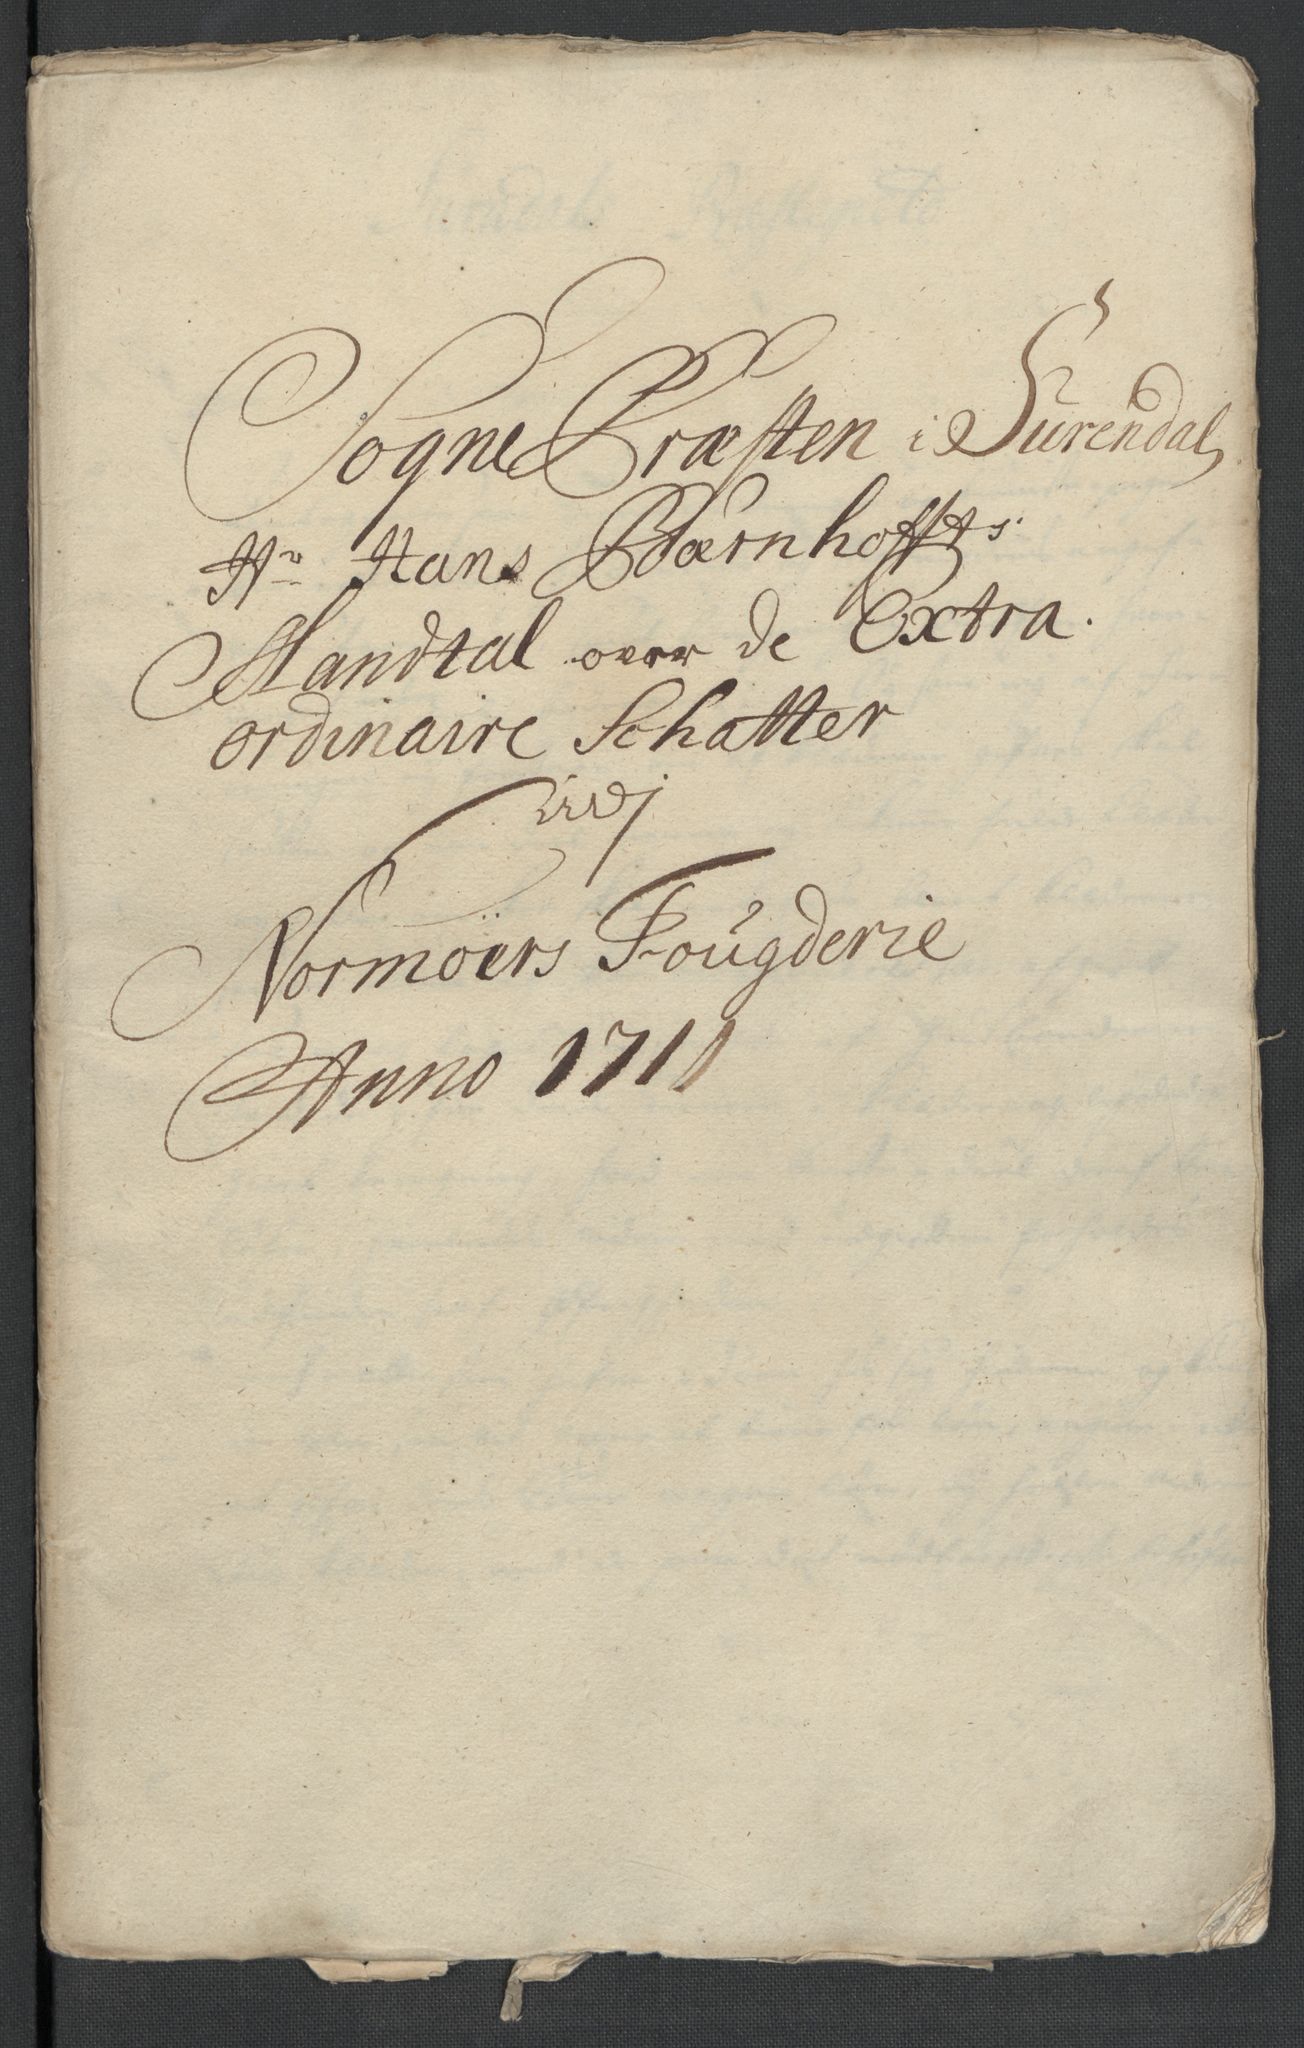 Sogne Præsten i Surendal
Hr. Hans Bærnhoffts
Mandtal over de Extra
ordinaire Schatter
udj
Normöers Fougderie
Anno 1711